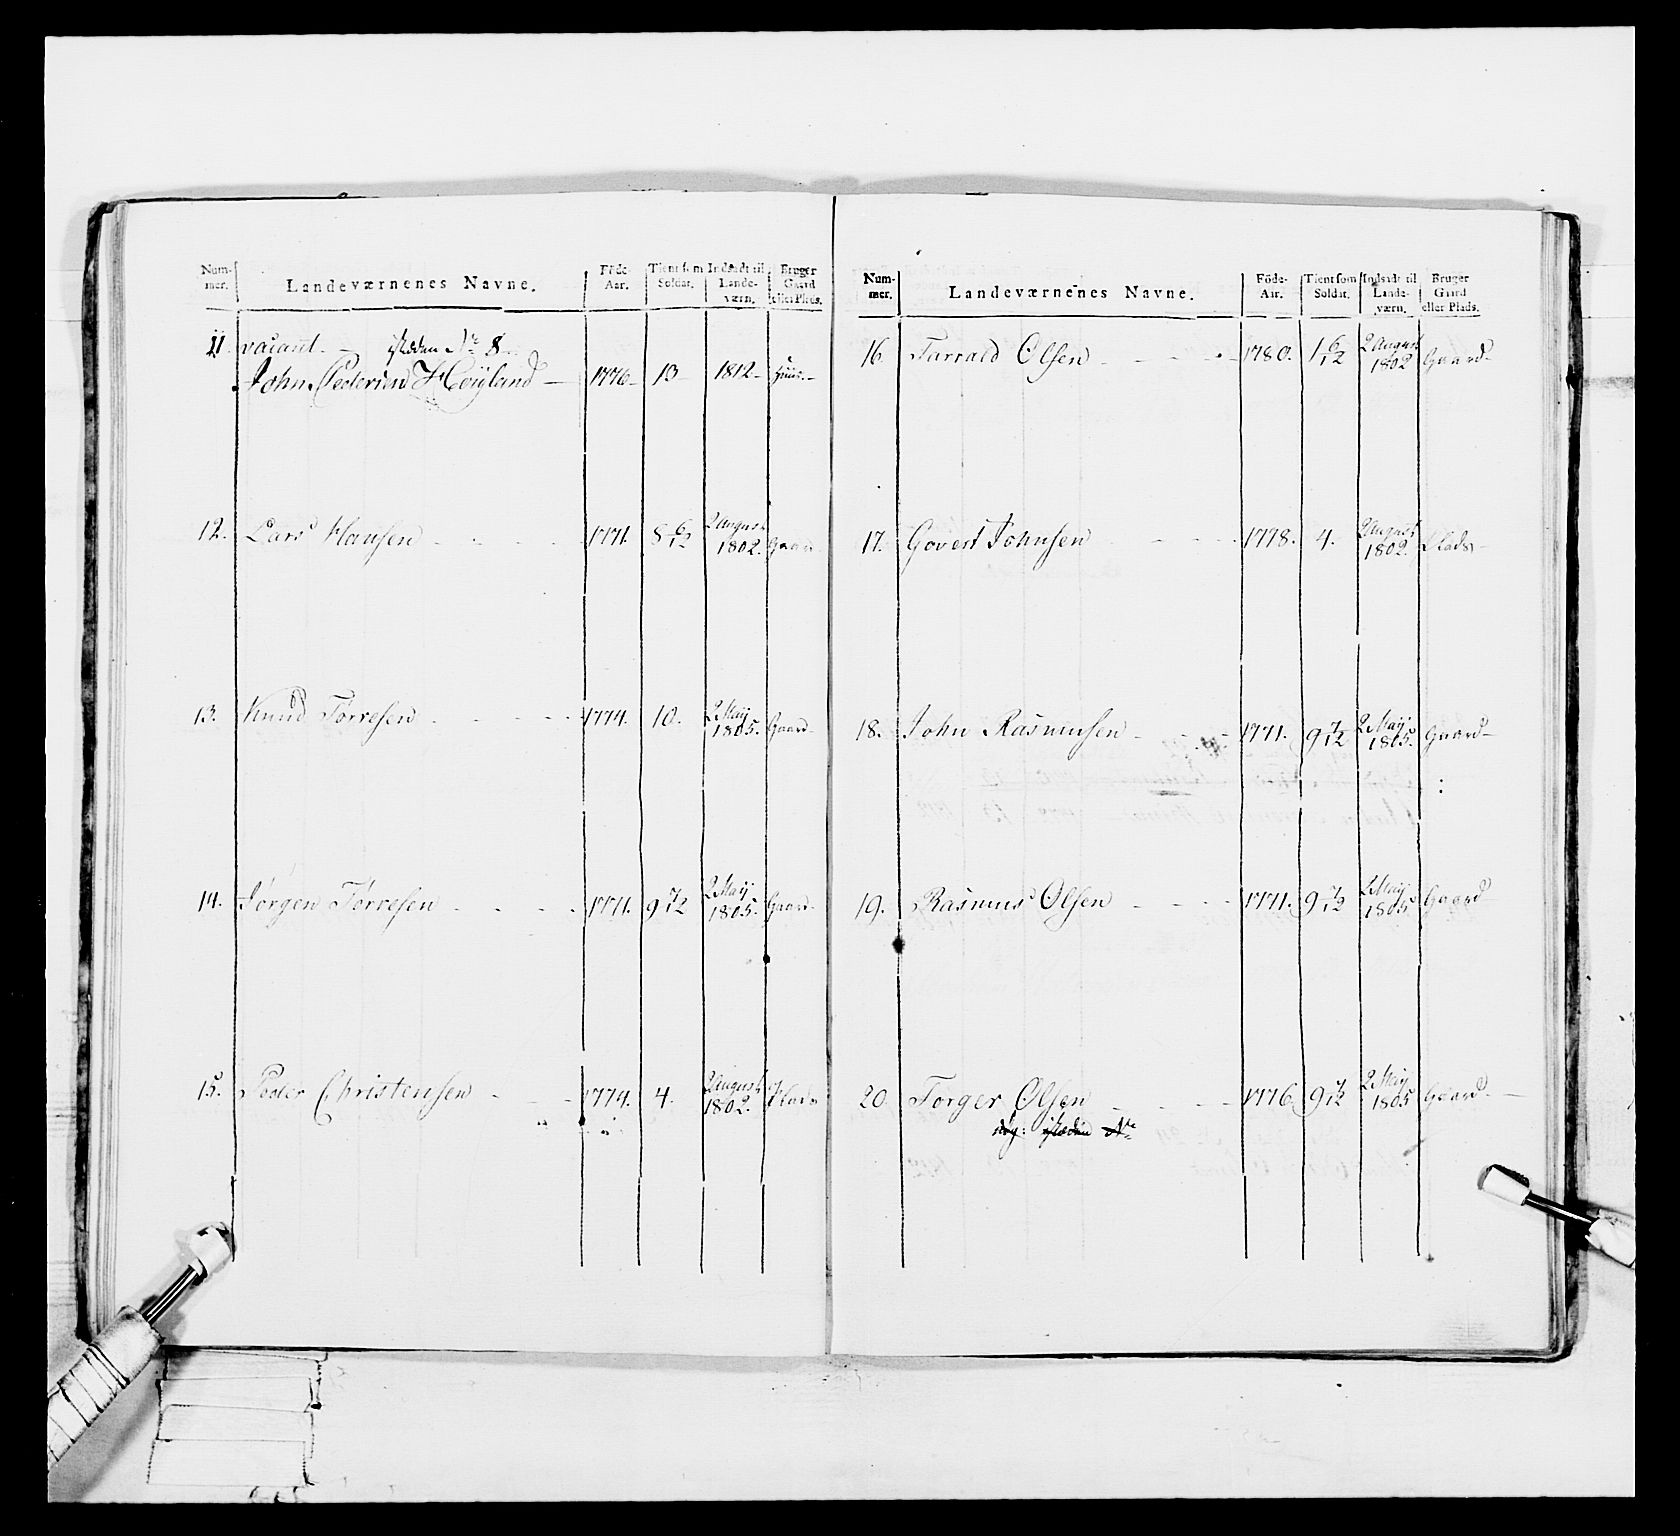 Num- mer. Landeværnenes Navne. Föde- Aar. Tient som Soldat. Indsadt til Lande- værn. Bruger Gaard eller Plads.
11 vacant. — istæden No 8
John Pedersen Høyland — 1776 13 1812 Huus
12. Lars Hansen 1771. 8 6/12 2 August 1802. Gaard
13. Knud Torresen 1774. 10. 2 Maij 1805. Gaard
14. Jørgen Torresen 1771. 9 7/12 2 Maij 1805. Gaard
15. Peder Christensen 1774. 4. 2 August 1802. Plads
Num- mer. Landeværnenes Navne. Föde- Aar. Tient som Soldat. Indsadt til Lande- værn. Bruger Gaard eller Plads.
16. Tarrald Olsen 1780. 1 6/12 2 August 1802 Gaard
17. Govert Johnsen 1778. 4. 2 August 1802. Plads
18. John Rasmusen 1771. 9 7/12 2 Maij 1805. Gaard
19. Rasmus Olsen 1771. 9 7/12 2 Maij 1805 Gaard
20 Torger Olsen 1776. 9 7/12 2 Maij 1805 Gaard
istæden No